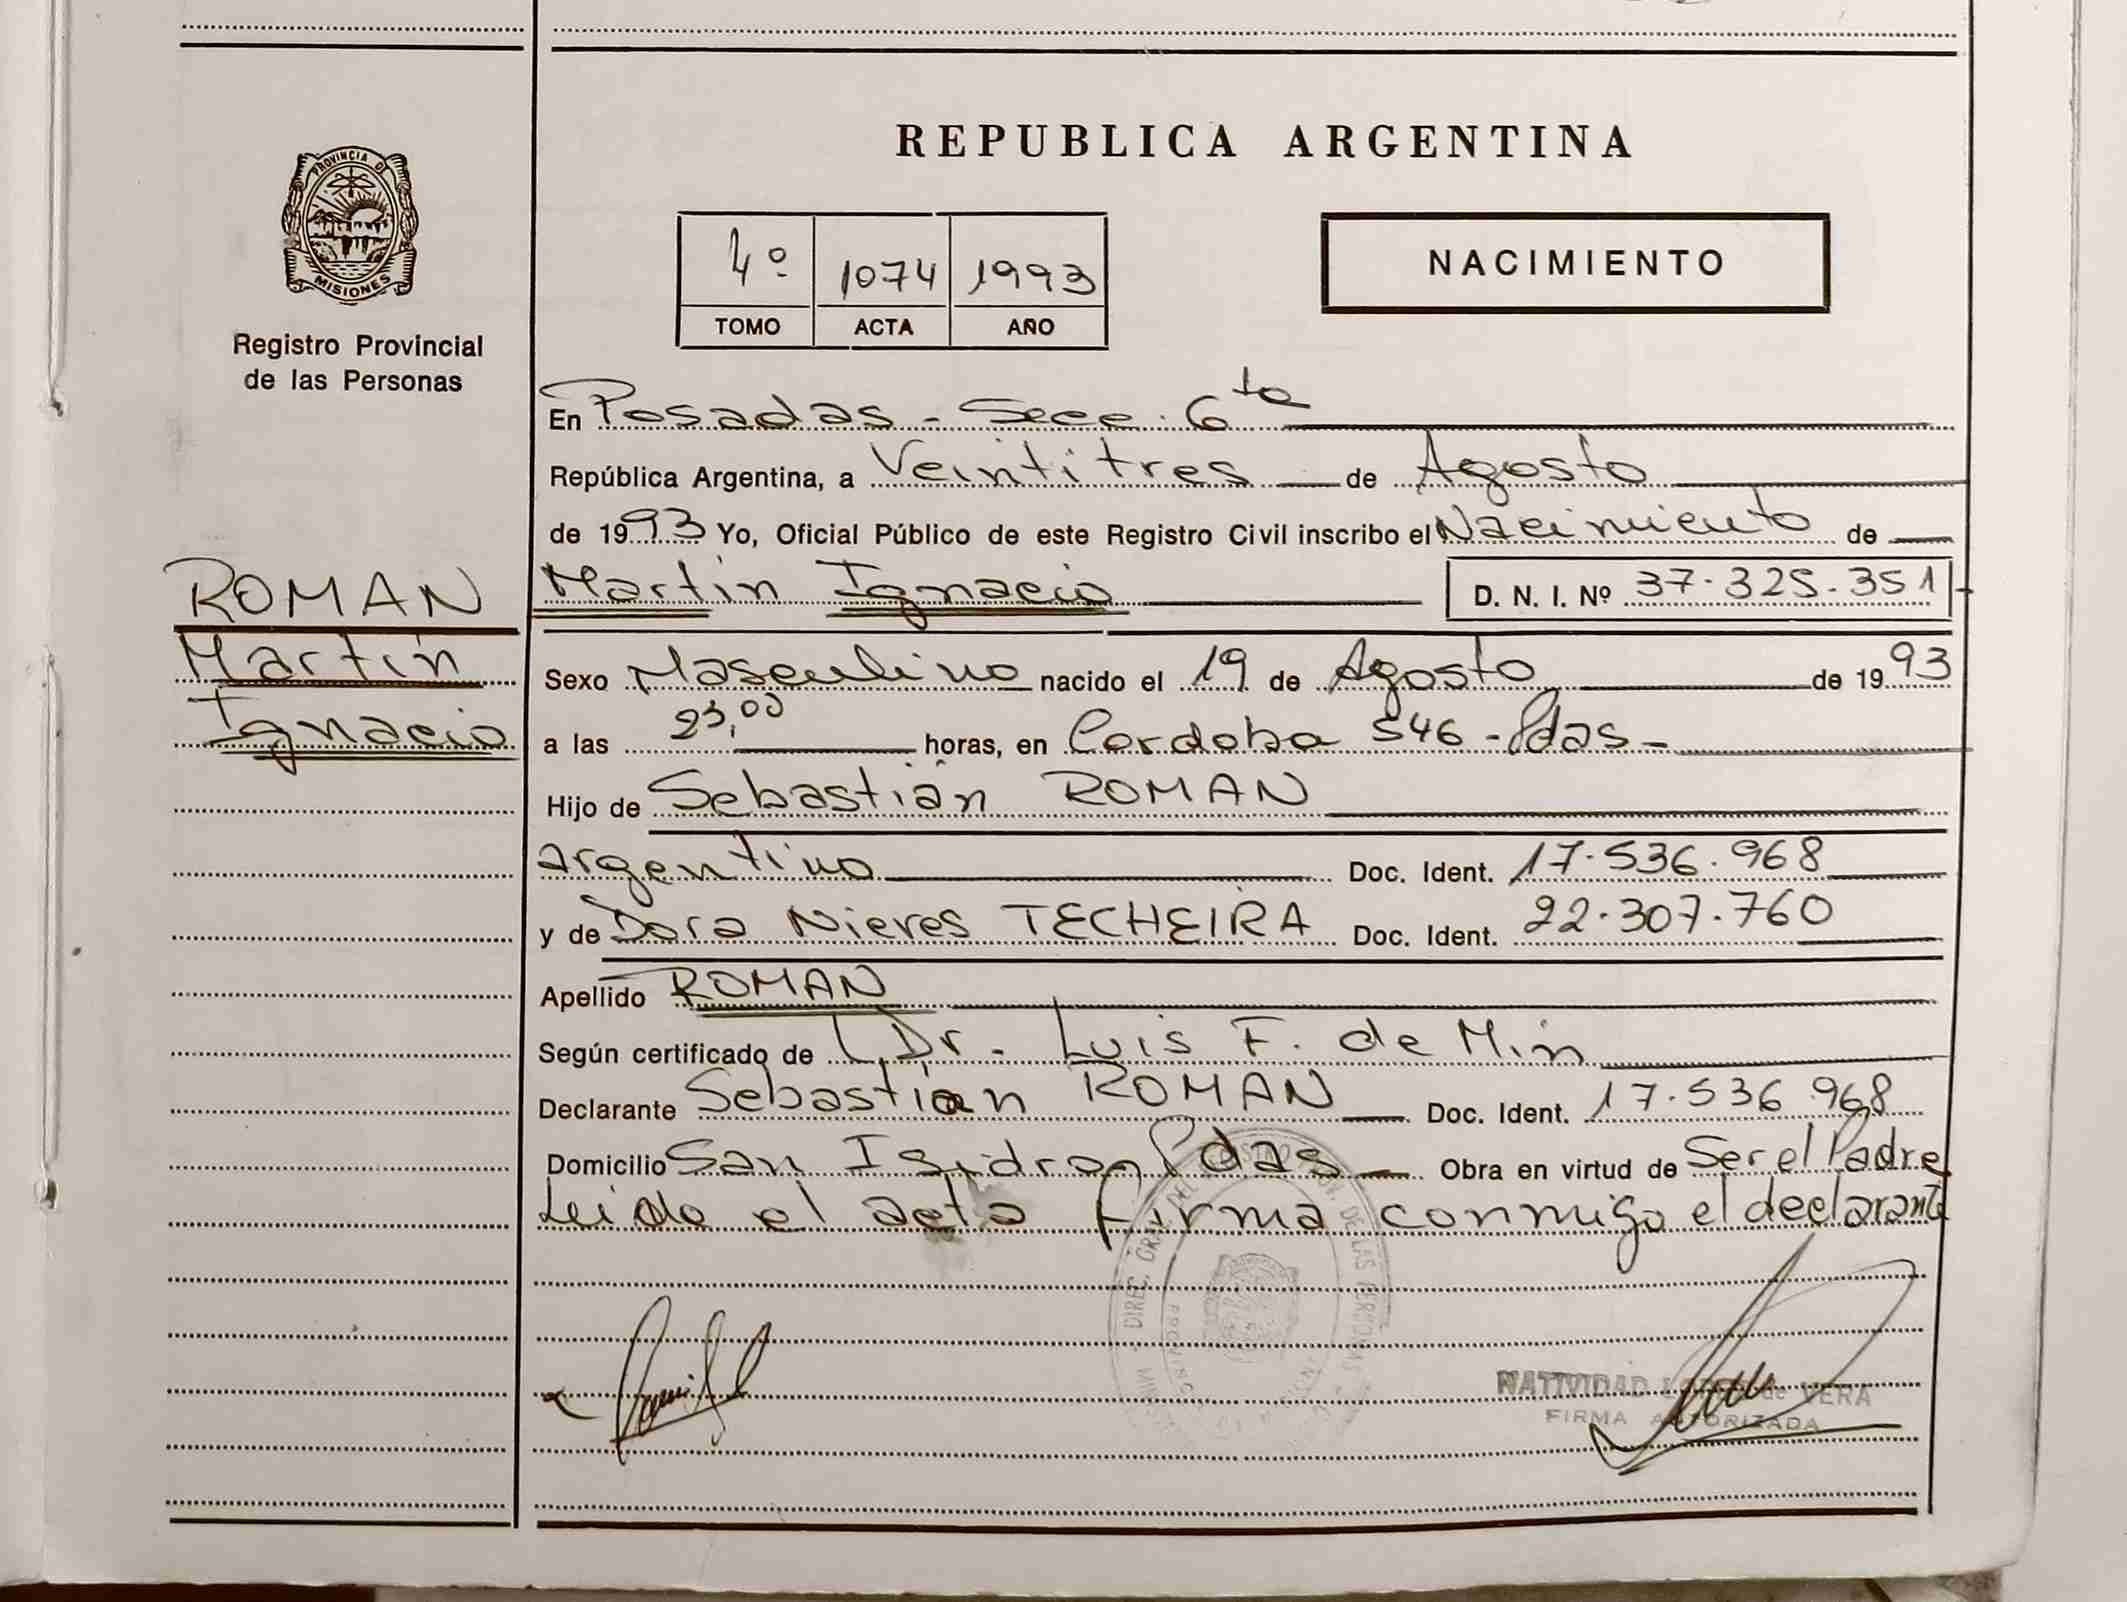 REPUBLICA ARGENTINA
PROVINCIA D
MISIONES
Registro Provincial
de las Personas
4º 1074 1993
TOMO ACTA AÑO
NACIMIENTO
En Posadas - Secc. 6ta
República Argentina, a Veintitres de Agosto
de 1993 Yo, Oficial Público de este Registro Civil inscribo el Nacimiento de
ROMAN
Martín
Ignacio
Martin Ignacio D. N. I. Nº 37.325.351
Sexo Masculino nacido el 19 de Agosto de 1993
a las 23,00 horas, en Cordoba 546 - Pdas -
Hijo de Sebastián ROMAN
argentino Doc. Ident. 17.536.968
y de Dora Nieves TECHEIRA Doc. Ident. 22.307.760
Apellido ROMAN
Según certificado de Dr. Luis F. de Min
Declarante Sebastian ROMAN Doc. Ident. 17.536.968
Domicilio San Isidro Pdas Obra en virtud de Ser el Padre
Leido el acta firma conmigo el declarante
DIREC. GRAL. DEL DE LAS PERSONAS
NATIVIDAD LOPEZ de VERA
FIRMA AUTORIZADA